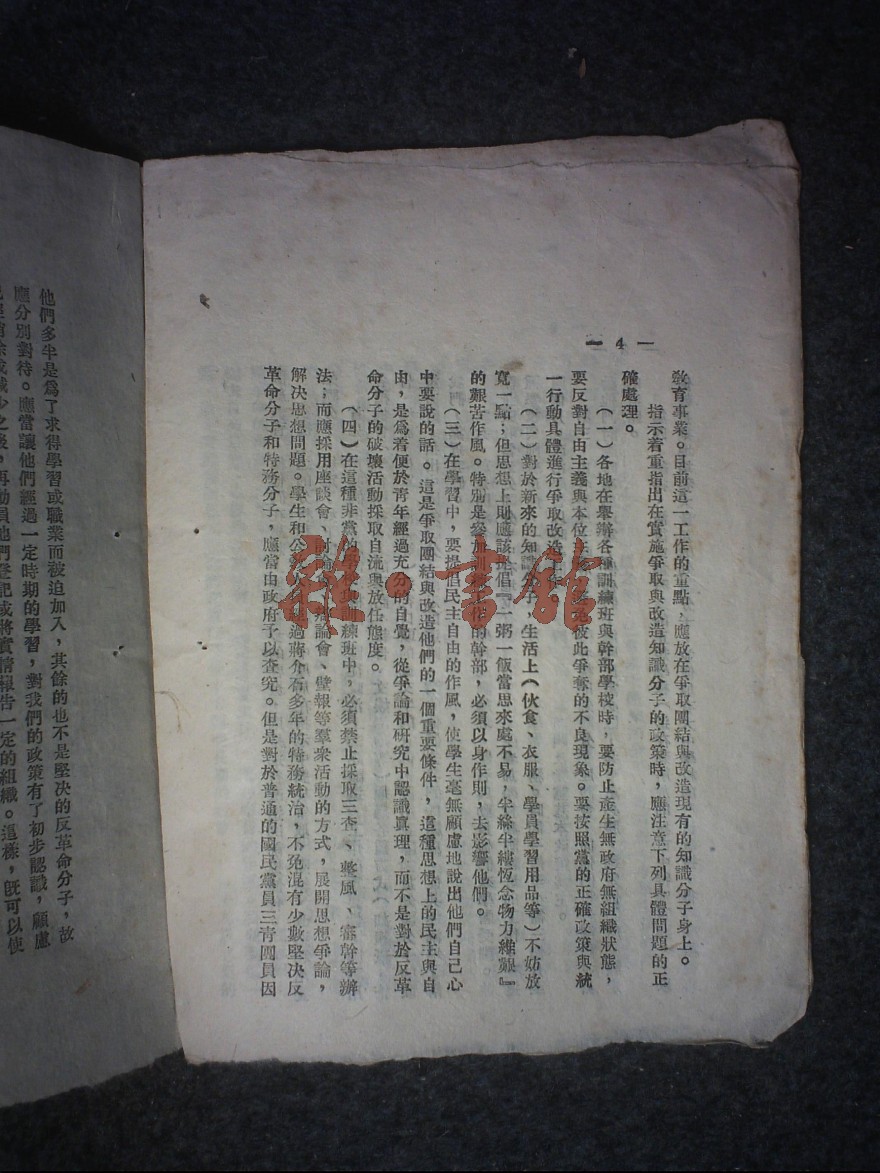 — 4 —
敎育事業。目前這一工作的重點，應放在爭取團結與改造現有的知識分子身上。
指示着重指出在實施爭取與改造知識分子的政策時，應注意下列具體問題的正
確處理。
（一）各地在舉辦各種訓練班與幹部學校時，要防止產生無政府無組織狀態，
要反對自由主義與本位主義，避免彼此爭奪的不良現象。要按照黨的正確政策與統
一行動具體進行爭取改造工作。
（二）對於新來的知識分子，生活上（伙食、衣服、學員學習用品等）不妨放
寬一點；但思想上則應該提倡『一粥一飯當思來處不易，半絲半縷恆念物力維艱』
的艱苦作風。特別是參加訓練工作的幹部，必須以身作則，去影響他們。
（三）在學習中，要提倡民主自由的作風，使學生毫無顧慮地說出他們自己心
中要說的話。這是爭取團結與改造他們的一個重要條件，這種思想上的民主與自
由，是爲着便於靑年經過充分的自覺，從爭論和研究中認識眞理，而不是對於反革
命分子的破壞活動採取自流與放任態度。
（四）在這種非黨的訓練班中，必須禁止採取三查、整風、審幹等辦
法；而應採用座談會、討論會、辯論會、壁報等羣衆活動的方式，展開思想爭論，
解决思想問題。學生和公敎人員經過蔣介石多年的特務統治，不免混有少數堅决反
革命分子和特務分子，應當由政府予以查究。但是對於普通的國民黨員三靑團員因
他們多半是爲了求得學習或職業而被迫加入，其餘的也不是堅决的反革命分子，故
應分別對待。應當讓他們經過一定時期的學習，對我們的政策有了初步認識，顧慮
減少之後，再動員他們登記或將實情報告一定的組織。這樣，旣可以使
雜·書館